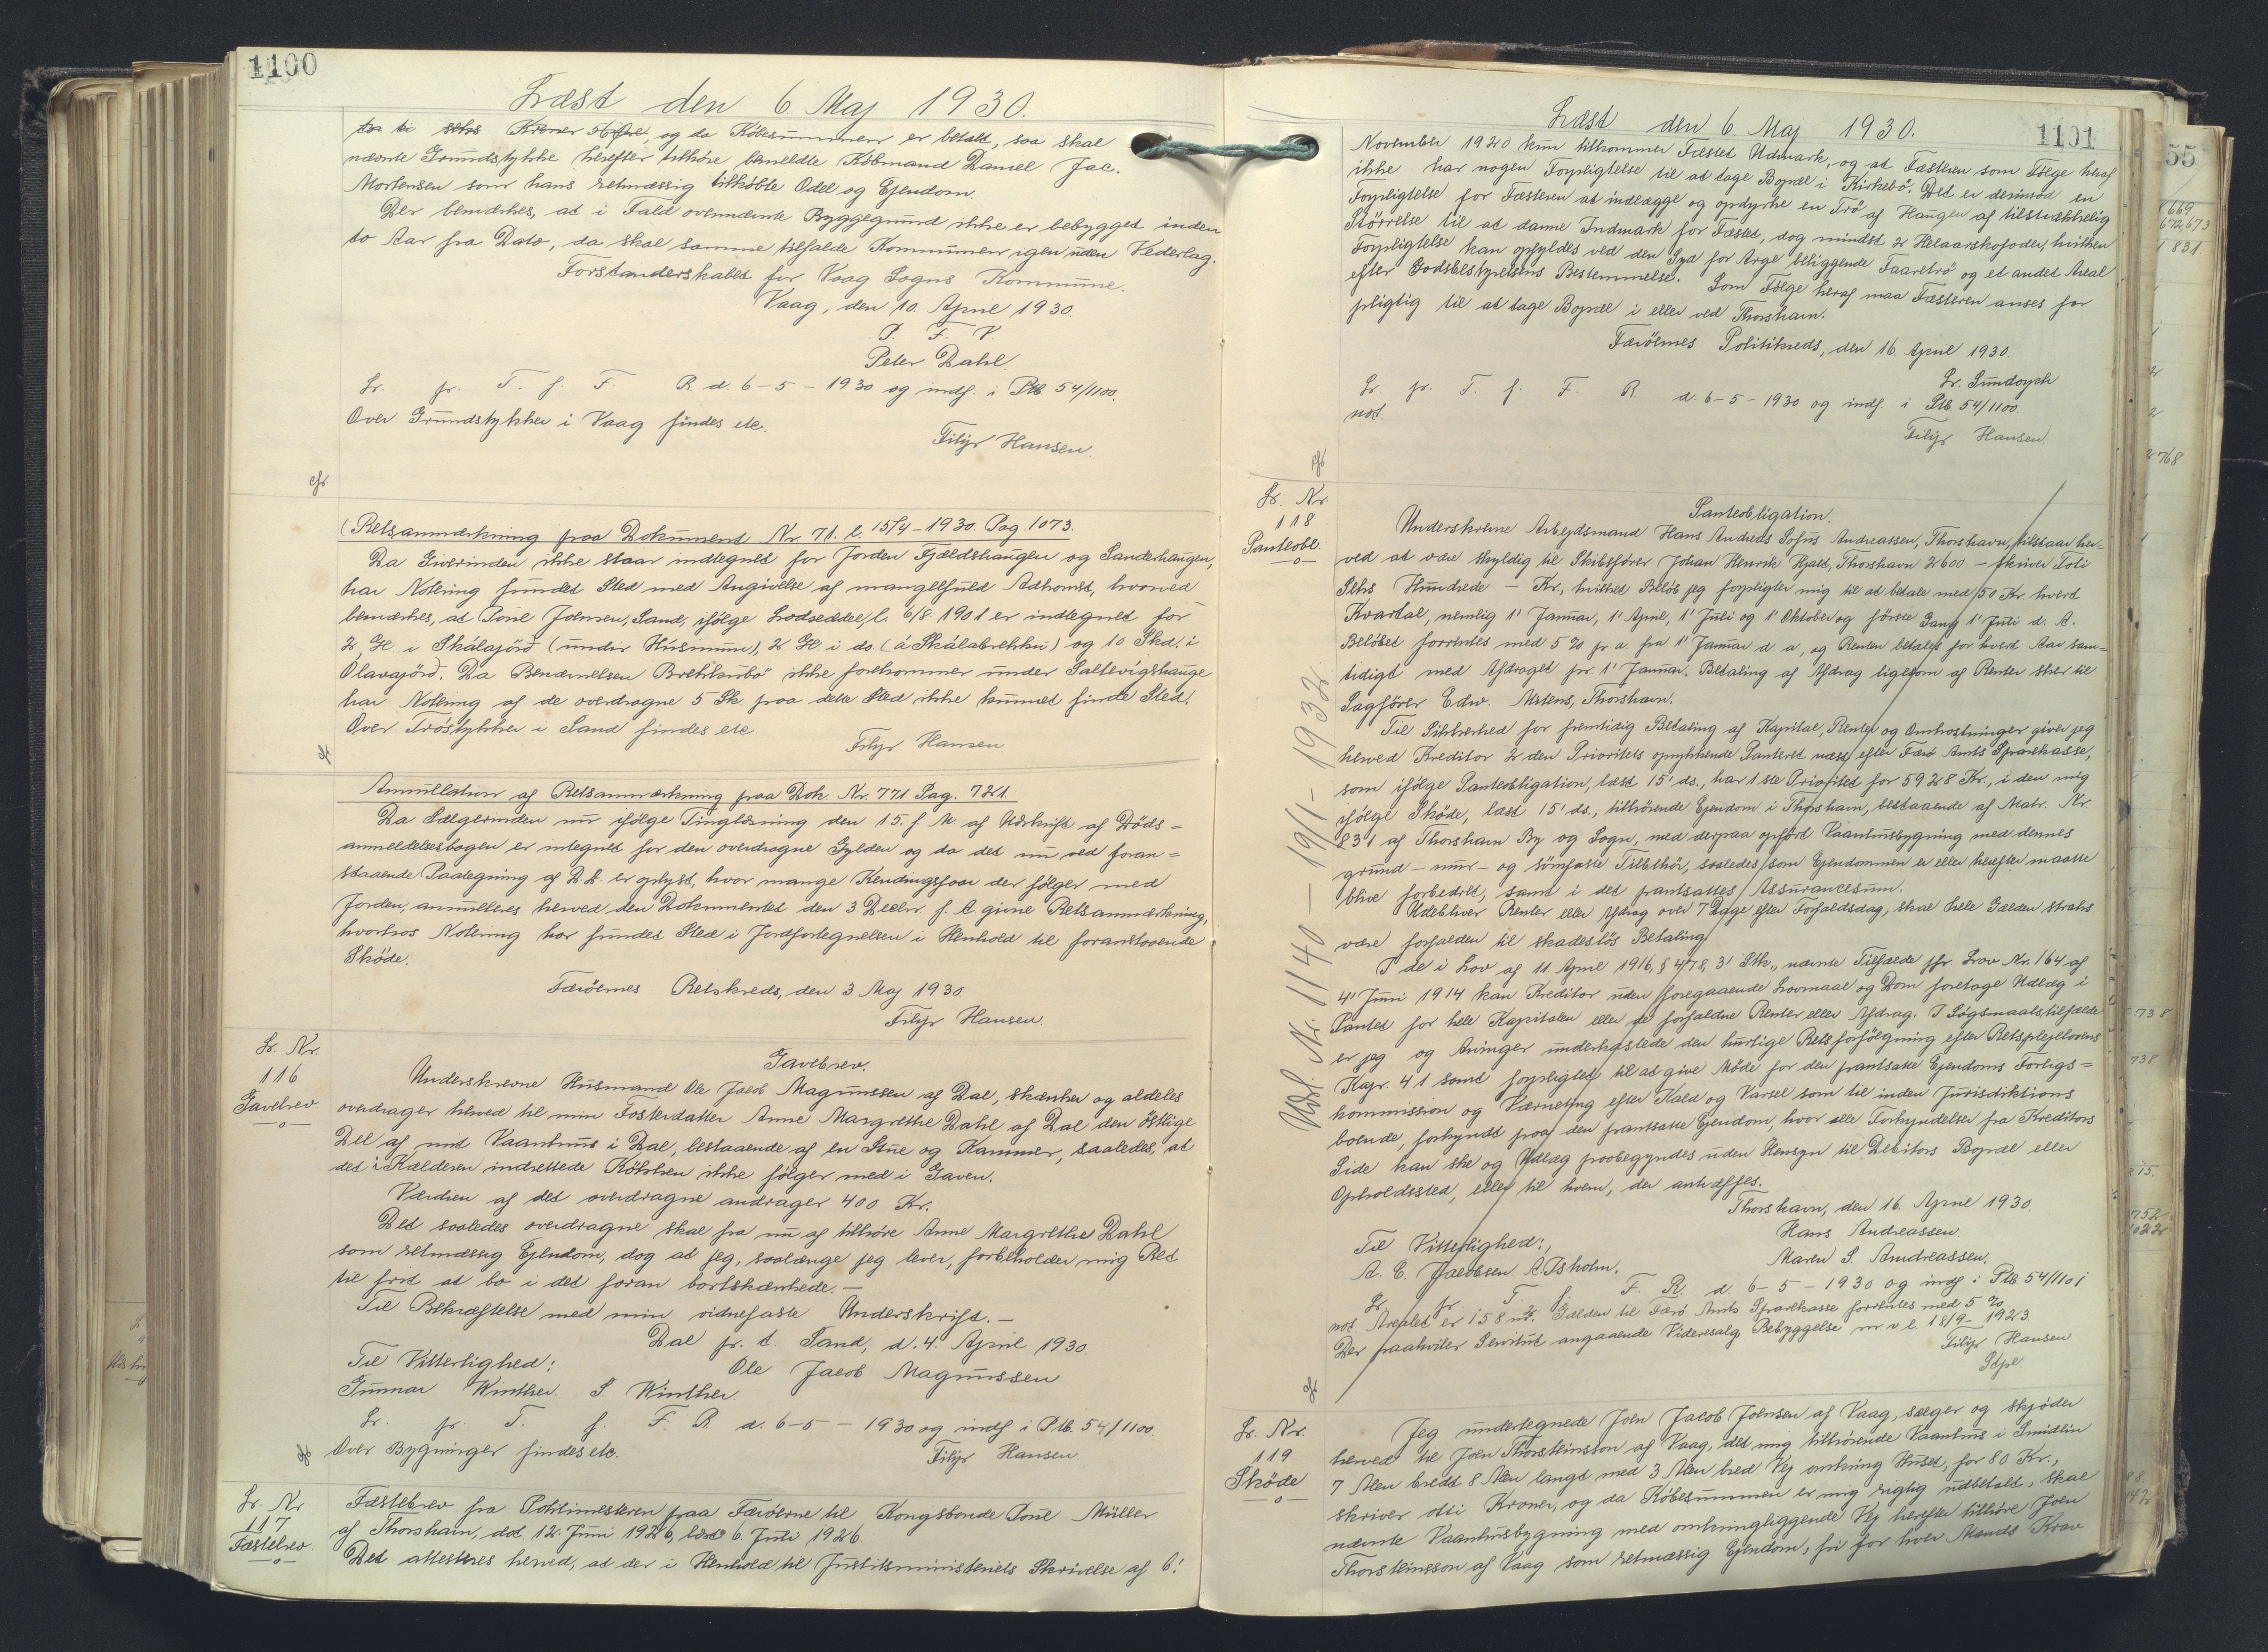 1100
Læst den 6 Maj 1930.
og da Köbesummen er betalt, saa skal
nævnte Grundstykke herefter tilhöre bemeldte Köbmand Daniel Jac.
Mortensen som hans retmæssig tilköbte Odel og Ejendom.
Der bemærkes, at i Fald ovennævnte Byggegrund ikke er bebygget inden
to Aar fra Dato, da skal samme tilfalde Kommunen igen uden Vederlag.
Forstanderskabet for Vaag Sogns Kommune.
Vaag, den 10. April 1930.
P. F. V.
Peter Dahl.
Lr. pr. T. f. F. R. d. 6-5-1930 og indf. i Ptb. 54/1100.
Over Grundstykker i Vaag findes etc.
Filip Hansen.
cfr.
(Retsanmærkning paa Dokument Nr 71. l. 15/4-1930. Pag. 1073.
Da Giverinden ikke staar indtegnet for Jorden Fjældshaugen og Sanderhaugen,
har Notering fundet Sted med Angivelse af mangelfuld Adkomst, hvorved
bemærkes, at Poul Joensen, Sand, ifölge Lodseddel, l. 6/8 1901 er indtegnet for
2 Gl. i Skálajörd (undir Húsmum), 2 Gl. i ds. (á Skálabrekku) og 10 Skd. i
Olavajörd. Da Benævnelsen Brekkubö ikke forekommer under Saltevigshauge
har Notering af de overdragne 5 Sk. paa dette Sted ikke kunnet finde Sted.
Over Tröstykker i Sand findes etc.
Filip Hansen
Annullation af Retsanmærkning paa Dok. Nr. 771 Pag. 721.
Da Sælgerinden nu ifölge Tinglæsning den 15. f. M. af Udskrift af Döds=
anmeldelsesbogen er indtegnet for den overdragne Gylden og da det nu ved foran=
staaende Paategning af D. D. er oplyst, hvor mange Kendingsfaar der fölger med
Jorden, annulleres herved den Dokumentet den 3 Decbr. f. A. givne Retsanmærkning,
hvorhos Notering har fundet Sted i Jordfortegnelsen i Henhold til foranstaaende
Sköde.
Færöernes Retskreds, den 3 Maj 1930
Filip Hansen.
Lr. Nr.
116
Gavebrev
Gavebrev.
Underskrevne Husmand Ole Jacob Magnussen af Dal, skænker og aldeles
overdrager herved til min Fosterdatter Anne Margrethe Dahl af Dal den östlige
Del af mit Vaanhus i Dal, bestaaende af en Stue og Kammer, saaledes, at
det i Kælderen indrettede Kökken ikke fölger med i Gaven.
Værdien af det overdragne andrager 400 Kr.
Det saaledes overdragne skal fra nu af tilhöre Anne Margrethe Dahl
som retmæssig Ejendom, dog at jeg, saalænge jeg lever, forbeholder mig Ret
til frit at bo i det foran bortskænkede.-
Til Bekræftelse med min vidnefaste Underskrift.-
Dal pr. t. Sand, d. 4. April 1930
Til Vitterlighed:
Ole Jacob Magnussen
Gunnar Winther. S. Winther.
Lr. pr. T. f. F. R. d. 6-5-1930 og indf. i Ptb. 54/1100.
Over Bygninger findes etc.
Filip Hansen
Lr. Nr
117
Fæstebrev.
Fæstebrev fra Politimesteren paa Færöerne til Kongsbonde Poul Müller
af Thorshavn, dat 12. Juni 1926, læst 6. Juli 1926.
Det attesteres herved, at der i Henhold til Justitsministeriets Skrivelse af 6'
Læst den 6 Maj 1930.
1101
November 1920 kun tilkommer Fæstet Udmark, og at Fæsteren som Fölge heraf
ikke har nogen Forpligtelse til at tage Bopæl i Kirkebö. Det er derimod en
Forpligtelse for Fæsteren at indlægge og opdyrke en Trö af Haugen af tilstrækkelig
Störrelse til at danne Indmark for Fæstet, dog mindst 2 Helaarskofoder, hvilken
Forpligtelse kan opfyldes ved den Syd for Arge beliggende Faaretrö og et andet Areal
efter Godsbestyrelsens Bestemmelse. Som Fölge heraf maa Fæsteren anses for
pligtig til at tage Bopæl i eller ved Thorshavn.
Færöernes Politikreds, den 16. April 1930.
Lr. pr. T. f. F. R. d. 6-5-1930 og indf. i Ptb 54/1100.
not.
Filip Hansen.
Lr. Nr.
118
Panteobl.
Panteobligation.
Underskrevne Arbejdsmand Hans Andreas Sofus Andreassen, Thorshavn, tilstaar her=
ved at være skyldig til Skibsförer Johan Henrik Hjalt, Thorshavn 2600 - skriver Toti
Seks Hundrede - Kr., hvilket Belöb jeg forpligter mig til at betale med 150 Kr. hvert
Kvartal, nemlig 1' Januar, 1' April, 1' Juli og 1' Oktober og förste Gang 1' Juli d. A.
Belöbet forrentes med 5 % p. a. fra 1' Januar d. a., og Renten betales for hvert Aar sam=
tidigt med Afdraget pr. 1' Januar. Betaling af Afdrag ligesom af Renter sker til
Sagförer Edw. Mitens, Thorshavn.
Til Sikkerhed for fremtidig Betaling af Kapital, Renter og Omkostninger giver jeg
herved Kreditor 2 den Prioritets oprykkende Panteret næst efter Færö Amts Sparekasse,
som ifölge Panteobligation, læst 15' ds., har 1 ste Prioritet for 5928 Kr., i den mig
ifölge Sköde, læst 15' ds., tilhörende Ejendom i Thorshavn, bestaaende af Matr. Nr.
831 af Thorshavn By og Sogn, med derpaa opfört Vaanhusbygning med dennes
grund- mur- og sömfaste Tilbehör, saaledes som Ejendommen er eller herefter maatte
blive forbedret, samt i det pantsattes Assurancesum.
Udebliver Renter eller Afdrag over 7 Dage efter Forfaldsdag, skal hele Gælden straks
være forfalden til skadeslös Betaling.
I de i Lov af 11 April 1916, § 478, 3' Stk., nævnte Tilfælde jfr. Lov Nr. 164 af
4' Juni 1914 kan Kreditor uden foregaaende Lovmaal og Dom foretage Udlæg i
Pantet for hele Kapitalen eller de forfaldne Renter eller Afdrag. I Sögsmaalstilfælde
er jeg og Arvinger underkastede den hurtige Retsforfölgning efter Retsplejelovens
Kap. 41 samt forpligtet til at give Möde for den pantsatte Ejendoms Forligs=
kommission og Værneting efter Kald og Varsel som til inden Jurisdiktions
boende, forkyndt paa den pantsatte Ejendom, hvor alle Forkyndelser fra Kreditors
Side kan ske og Udlæg paabegyndes uden Hensyn til Debitors Bopæl eller
Opholdssted, eller til hvem, der antræffes.
Thorshavn, den 16. April 1930.
Hans Andreassen.
Til Vitterlighed:
Maren S. Andreassen.
A. C. Jacobsen
Lr. pr. T. f. F. R. d. 6-5-1930 og indf i Ptb 54/1101
not. Arealet er 158 m². Gælden til Færö Amts Sparekasse forrentes med 5 %
Der paahviler Servitut angaaende Videresalg Bebyggelse m. v. l. 18/9-1923.
Filip Hansen
Udsl. Nr. 1140 - 19/1 - 1932
Lr. Nr.
119
Sköde
Jeg undertegnede Joen Jacob Joensen af Vaag, sælger og skjöder
herved til Joen Thorsteinsson af Vaag, det mig tilhörende Vaanhus i Smidlin
7 Alen bredt 8 Alen langt med 3 Alen bred Vej omkring Huset, for 80 Kr.,
skriver otti Kroner, og da Köbesummen er mig rigtig udbetalt, skal
nævnte Vaanhusbygning med omkringliggende Vej herefter tilhöre Joen
Thorsteinsson af Vaag som retmæssig Ejendom, fri for hver Mands Krav
55
669
672,673
831
768
738
738
815.
752
1022